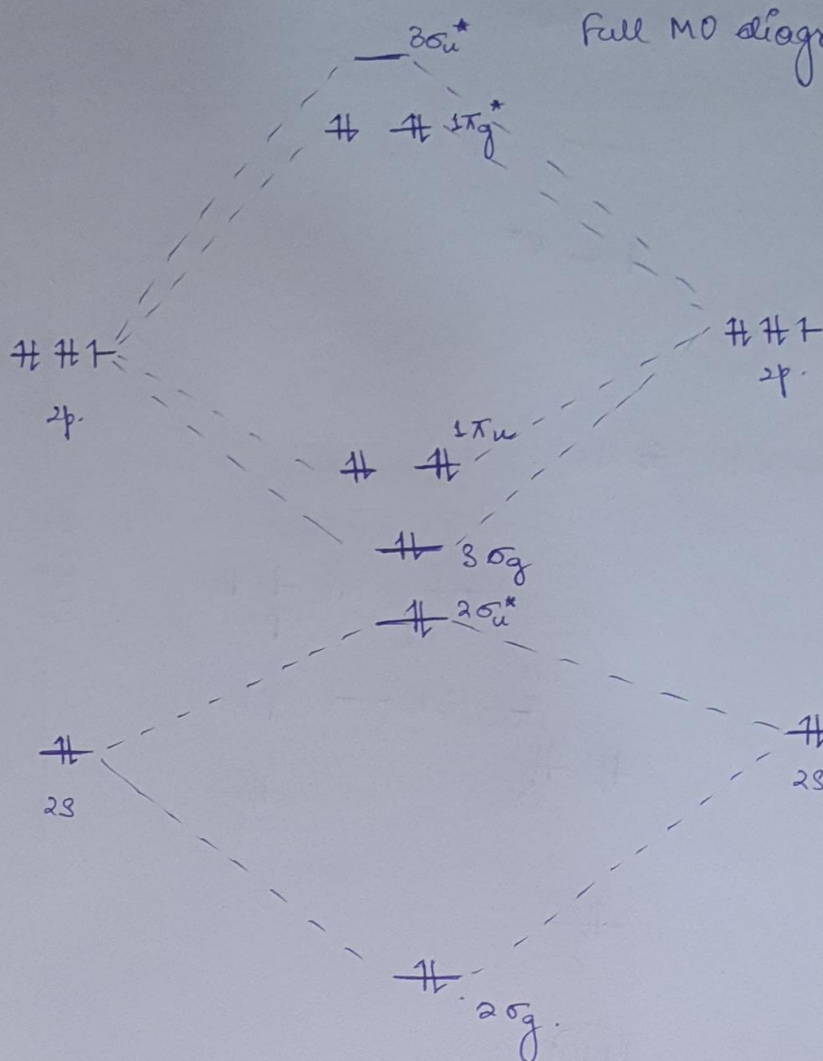 Full MO diagr
3σu*
1πg*
2p.
2p.
1πu
3σg
2σu*
2s
2s
2σg.